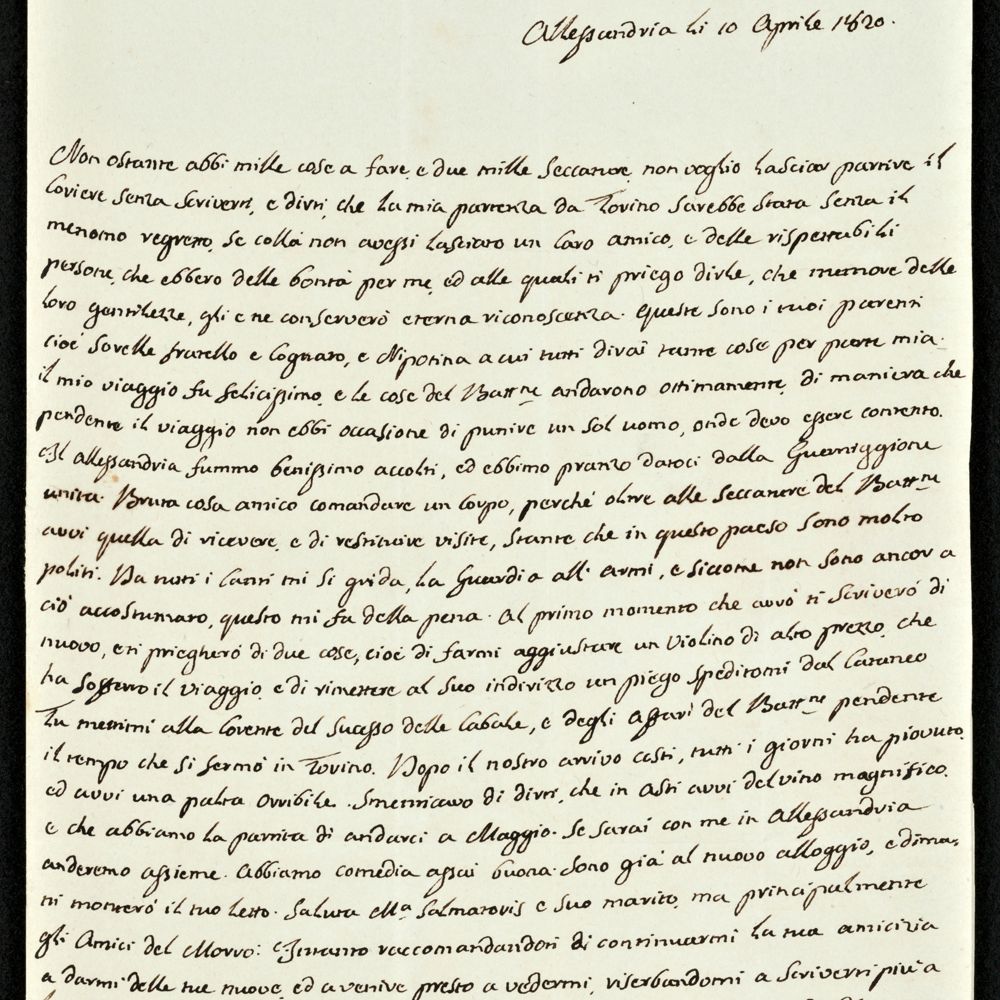 Allessandria li 10 Aprile 1820.
Non ostante abbi mille cose a fare, e due mille seccature, non voglio lasciar partire il
Coriere senza scriverti, e dirti, che la mia partenza da Torino sarebbe stata senza il
menomo regretto, se collà non avessi lasciato un Caro amico, e delle rispettabili
persone, che ebbero delle bontà per me, ed alle quali ti priego dirle, che memore delle
loro gentilezze, gli e ne conserverò eterna riconoscenza. Queste sono i tuoi parenti
cioè sorelle fratello e Cognato, e Nipotina a cui tutti dirai tante cose per parte mia.
il mio viaggio fu felicissimo, e le cose del Battne andarono ottimamente, di maniera che
pendente il viaggio non ebbi occasione di punire un sol uomo, onde devo essere contento.
In allessandria fummo benissimo accolti, ed ebbimo pranzo datoci dalla Guerniggione
unita. Bruta cosa amico comandare un Corpo, perchè oltre alle seccature del Battne
avvi quella di ricevere, e di restituire visite, stante che in questo paese sono molto
politi. Da tutti i Canti mi si grida, la Guardia all' armi, e siccome non sono ancor a
ciò accostumato, questo mi fa della pena. Al primo momento che avrò ti scriverò di
nuovo, e ti priegherò di due cose, cioè di farmi aggiustare un Violino di alto prezzo, che
ha sofferto il viaggio, e di rimettere al suo indirizzo un piego speditomi dal Cataneo
Tu mettimi alla Corente del sucesso delle Cabale, e degli affari del Battne pendente
il tempo che si fermò in Torino. Dopo il nostro arrivo costì, tutti i giorni ha piovuto,
ed avvi una palta orribile. Smenticavo di dirti, che in Asti avvi del vino magnifico,
e che abbiamo la partita di andarci a Maggio. Se sarai con me in Allessandria
anderemo assieme. Abbiamo comedia assai buona. Sono già al nuovo alloggio, e dima-
ni monterò il tuo Letto. Saluta Ma Salmatoris e suo marito, ma principalmente
gli Amici del Morro: Intanto raccomandandoti di continuarmi la tua amicizia
a darmi delle tue nuove, ed a venire presto a vedermi, riserbandomi a scriverti più a